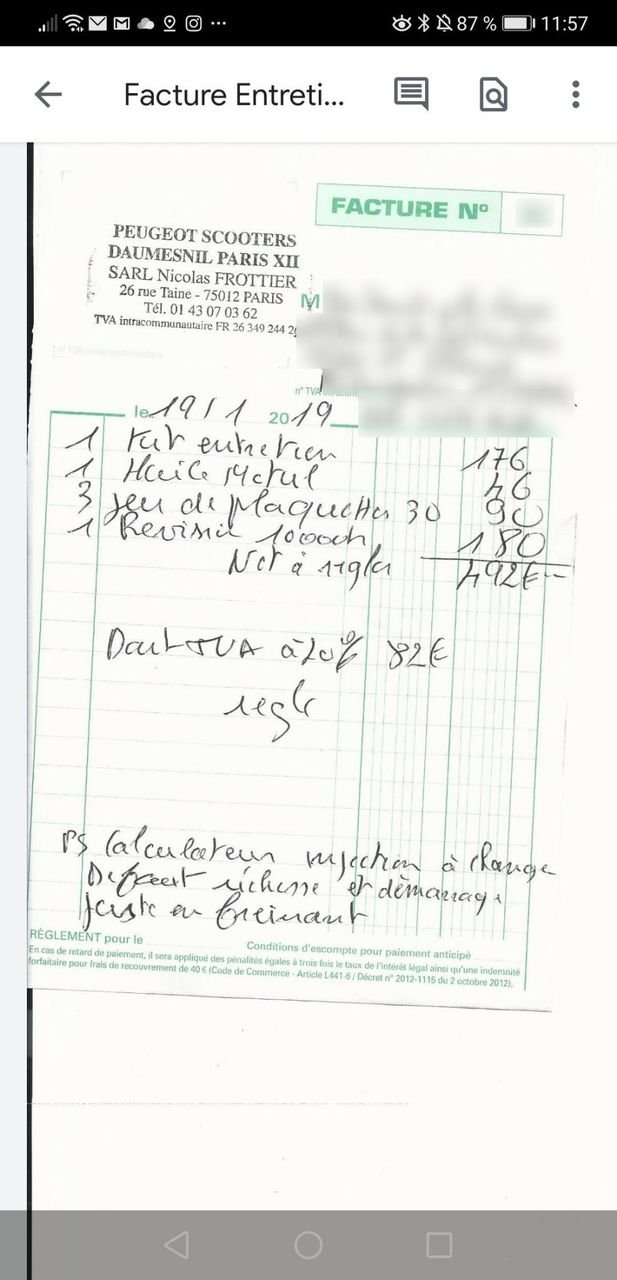 87 % 11:57
Facture Entreti...
FACTURE Nº
PEUGEOT SCOOTERS
DAUMESNIL PARIS XII
SARL Nicolas FROTTIER
26 rue Taine - 75012 PARIS
Tél. 01 43 07 03 62
TVA intracommunautaire FR 26 349 244 2
M
n° TVA intracom
le 19/1 2019
1 Kit entretien 176
1 Huile Motul 46
3 Jeu de plaquettes 30 90
1 Revision 10000 180
Net à regler 492€--
Dont TVA à 20% 82€
regle
PS Calculateur injection à change
Defaut richesse et démarrage
juste en freinant
RÈGLEMENT pour le
Conditions d'escompte pour paiement anticipé
En cas de retard de paiement, il sera appliqué des pénalités égales à trois fois le taux de l'intérêt légal ainsi qu'une indemnité
forfaitaire pour frais de recouvrement de 40 € (Code de Commerce - Article L441-6 / Décret n° 2012-1115 du 2 octobre 2012).